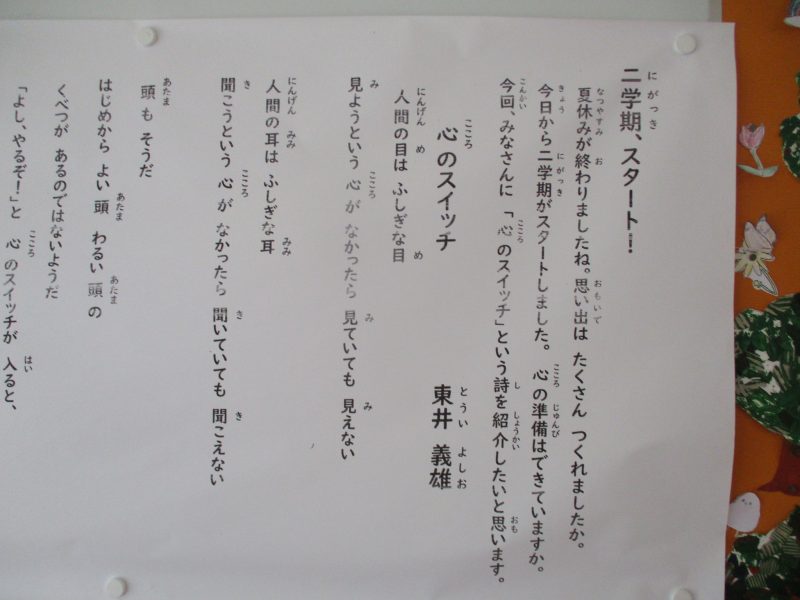 二学期、スタート!!
夏休みが終わりましたね。思い出は たくさん つくれましたか。
今日から二学期がスタートしました。 心の準備はできていますか。
今回、みなさんに 「心のスイッチ」という詩を紹介したいと思います。
心のスイッチ
東井 義雄
人間の目は ふしぎな目
見ようという 心が なかったら 見ていても 見えない
人間の耳は ふしぎな耳
聞こうという 心が なかったら 聞いていても 聞こえない
頭も そうだ
はじめから よい頭 わるい頭の
くべつが あるのではないようだ
「よし、やるぞ！」と 心のスイッチが 入ると、